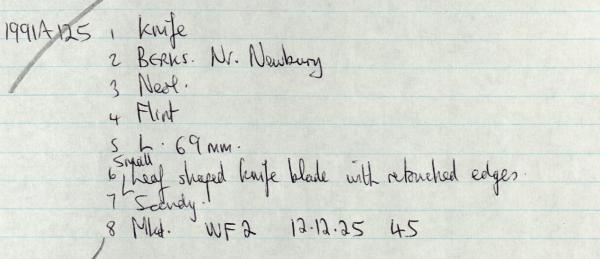 1991A125 1 Knife
2 BERKS. Nr. Newbury
3 Neol.
4 Flint
5 L. 69mm.
Small
6 Leaf shaped knife blade with retouched edges.
7 Scandy.
8 Mkd. WF2 12.12.25 45